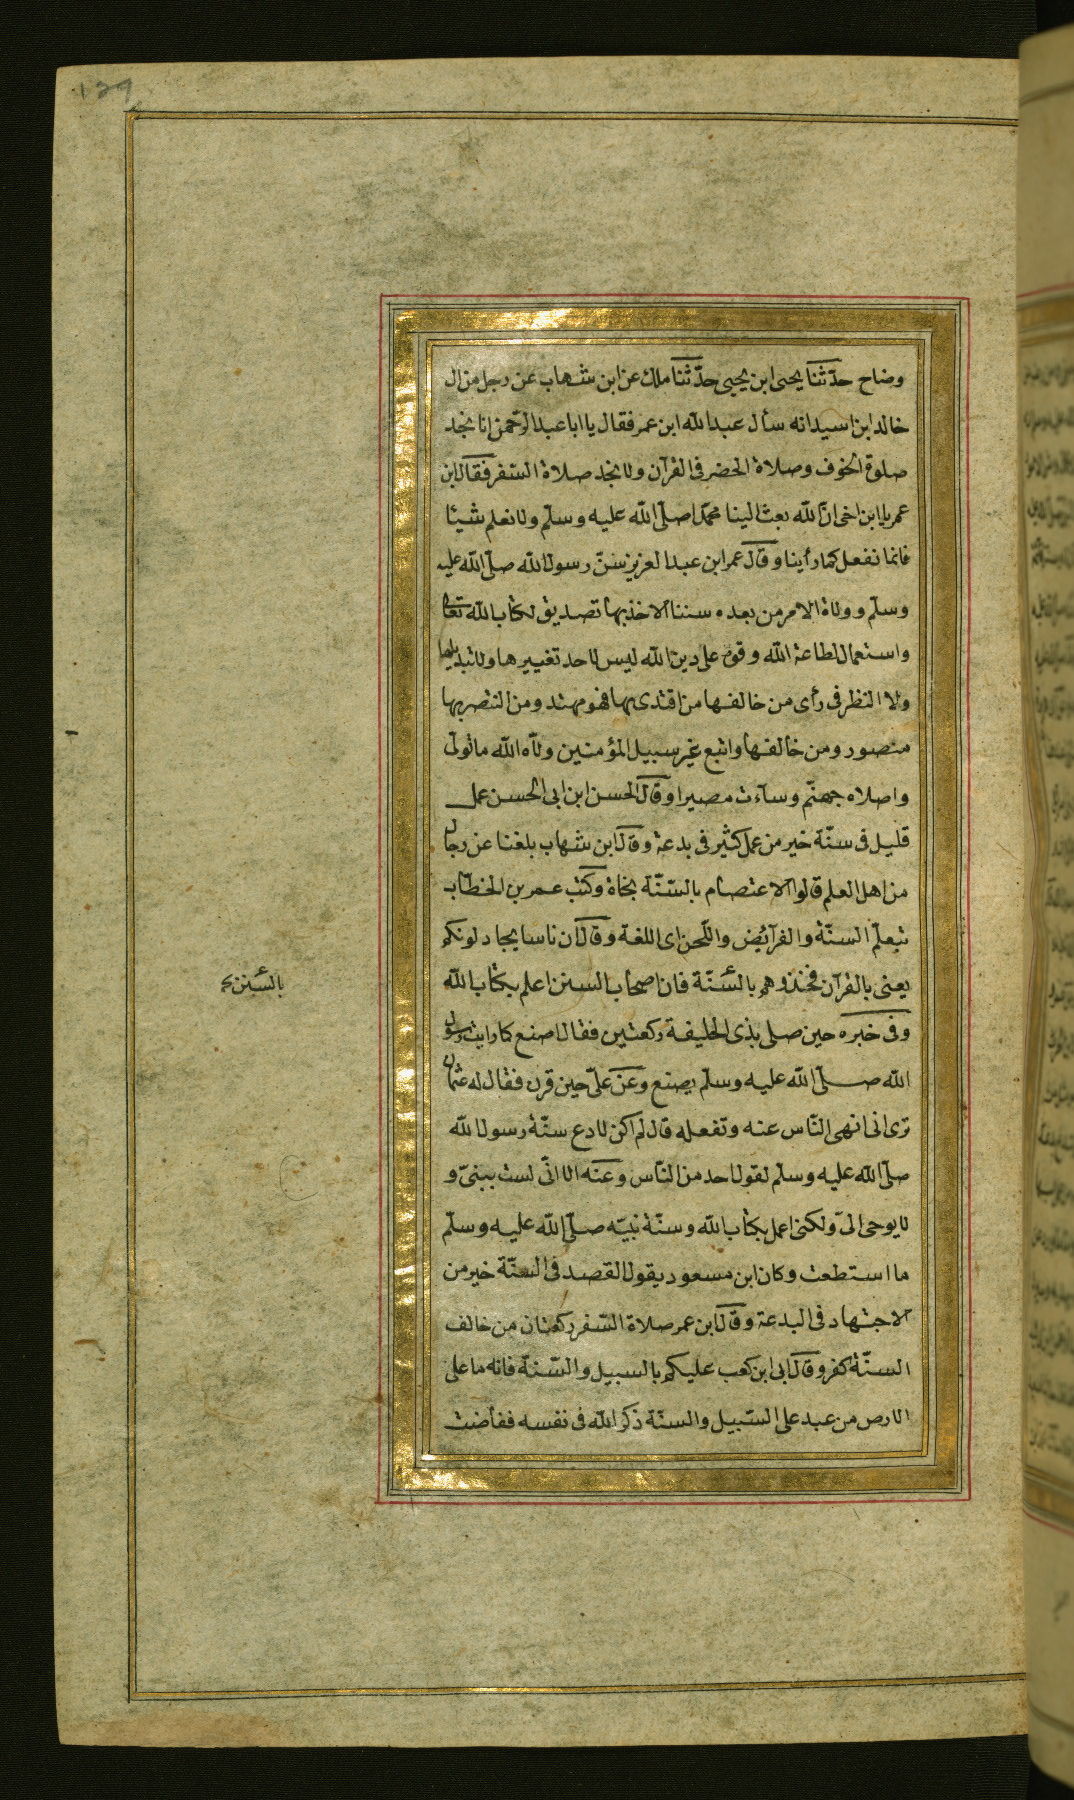 وضاح حدّثنا يحيى ابن يحيى حدّثنا ملك عن ابن شهاب عن رجل من ال
خالد ابن اسيد انه سأل عبد الله ابن عمر فقال يا ابا عبد الرّحمن انا نجد
صلوة الخوف وصلاة الحضر فى القرآن ولا نجد صلاة السّفر فقال ابن
عمر يا ابن اخى انّ الله بعث الينا محمّدا صلّى الله عليه وسلّم ولا نعلم شيئا
فانما نفعل كما رأينا وقال عمر ابن عبد العزيز سنّ رسول الله صلّى الله عليه
وسلّم وولاة الامر من بعده سننا الاخذ بها تصديق لكتاب الله تعالى
واستعمال لطاعة الله وقوة على دين الله ليس لاحد تغييرها ولا تبديلها
ولا النظر فى رأى من خالفها من اقتدى بها فهو مهتد ومن انتصر بها
منصور ومن خالفها واتبع غير سبيل المؤمنين ولّاه الله ما تولّى
واصلاه جهنّم وسآءت مصيرا وقال الحسن ابن ابى الحسن عمل
قليل فى سنّة خير من عمل كثير فى بدعة وقال ابن شهاب بلغنا عن رجال
من اهل العلم قالوا الاعتصام بالسّنّة نجاة وكتب عمر بن الخطّاب
بتعلّم السنّة والفرآئض واللّحن اى اللغة وقال ان ناسا يجادلونكم
يعنى بالقرآن فخذوهم بالسّنّة فان اصحاب السنن اعلم بكتاب الله
بالسّنن
وفى خبره حين صلى بذى الحليفة ركعتين فقال اصنع كما رايت رسول
الله صلّى الله عليه وسلّم يصنع وعن علىّ حين قرن فقال له عثمان
ترى انى انهى النّاس عنه وتفعله قال لم اكن لادع سنّة رسول الله
صلّى الله عليه وسلّم لقول احد من النّاس وعنه الا انّى لست بنبىّ و
لا يوحى الىّ ولكنى اعمل بكتاب الله وسنّة نبيّه صلّى الله عليه وسلّم
ما استطعت وكان ابن مسعود يقول القصد فى السنّة خير من
الاجتهاد فى البدعة وقال ابن عمر صلاة السّفر ركعتان من خالف
السنّة كفر وقال ابى ابن كعب عليكم بالسبيل والسّنّة فانه ما على
الارض من عبد على السّبيل والسنّة ذكر الله فى نفسه ففاضت